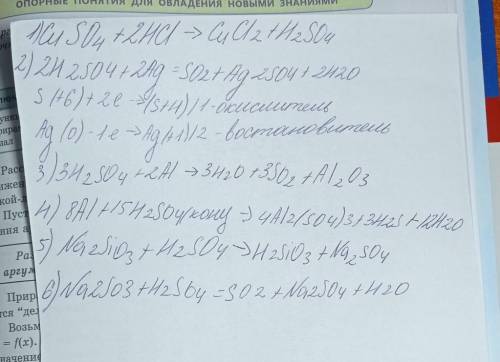 ОПОРНЫЕ ПОНЯТИЯ ДЛЯ ОВЛАДЕНИЯ НОВЫМИ ЗНАНИЯМИ
1) CuSO4 + 2HCl → CuCl2 + H2SO4
2) 2H2SO4 + 2Ag = SO2 + Ag2SO4 + 2H2O
S(+6) + 2e → (S+4) | 1 - окислитель
Ag(0) - 1e → Ag(+1) | 2 - востановитель
3) 3H2SO4 + 2Al → 3H2O + 3SO2 + Al2O3
4) 8Al + 15H2SO4(конц) → 4Al2(SO4)3 + 3H2S + 12H2O
5) Na2SiO3 + H2SO4 → H2SiO3 + Na2SO4
6) Na2SO3 + H2SO4 = SO2 + Na2SO4 + H2O
Пуст
Ра
аргум
Прир
тся "де
Возьм
= f(x).
значение